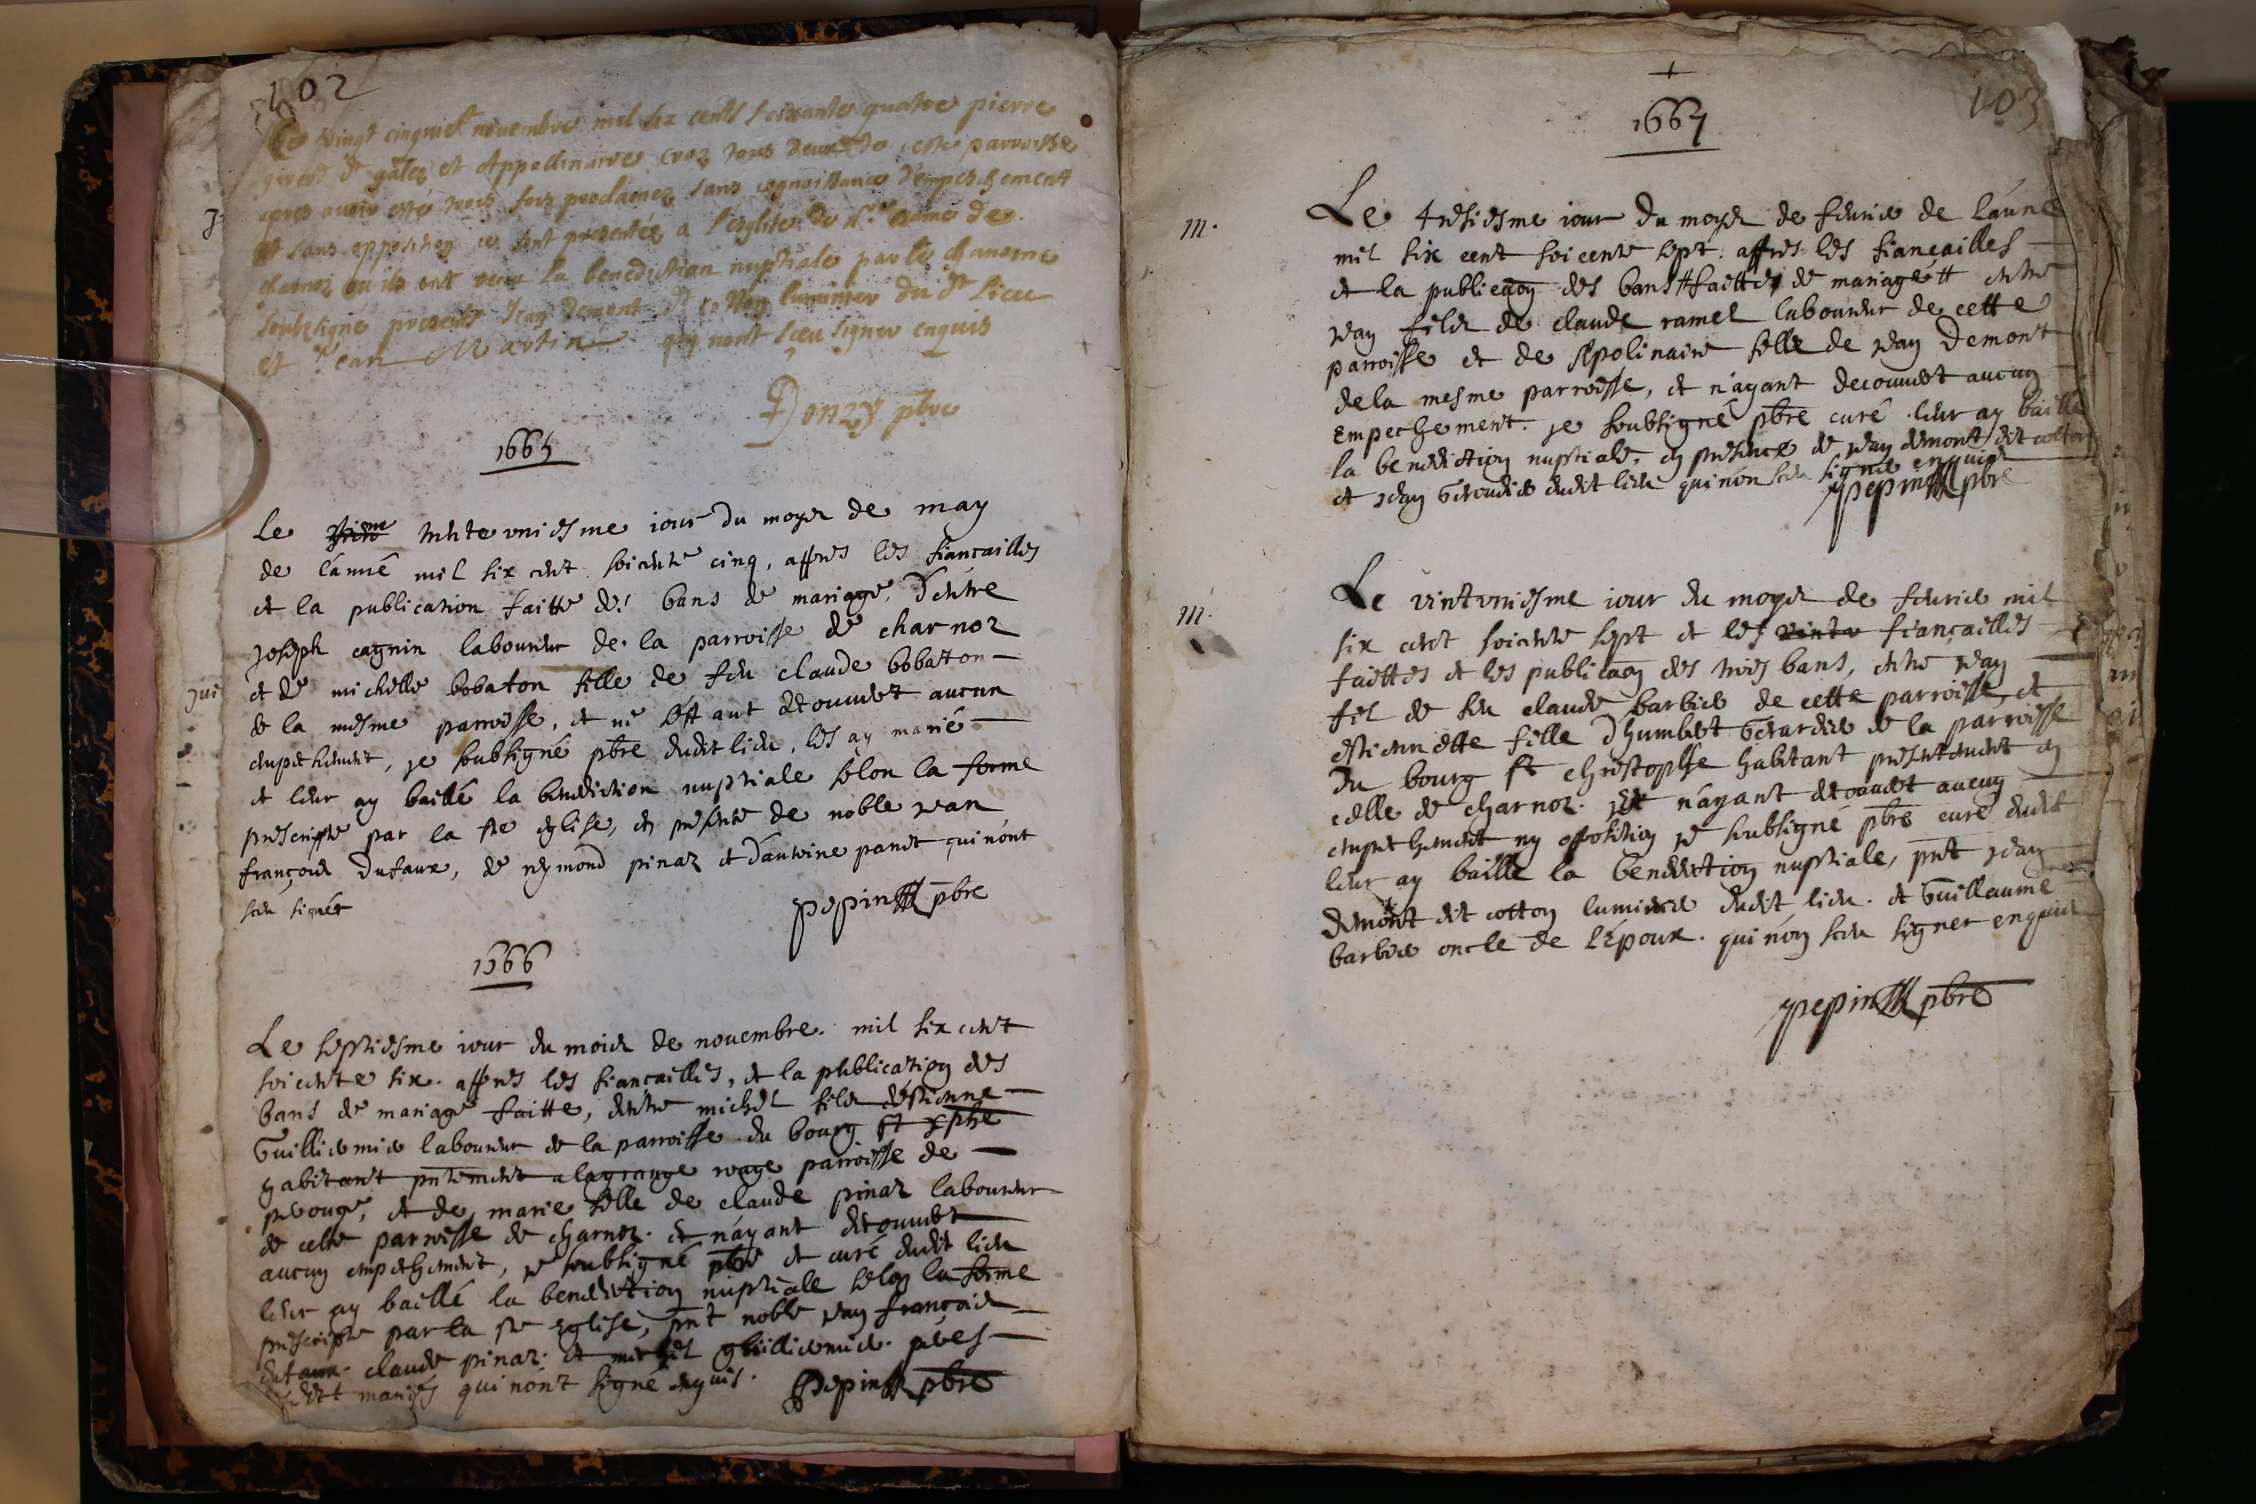 102
Le vingt cinquies novembre mil six cents soixante quatre pierre
et Appollinaire croz tous deux de ceste parroisse
apres avoir esté trois fois proclamez sans cognoissance d'empeschement
et sans opposition se sont presentéz a l'esglise de nre dame de
charnoz ou ils ont receu la benediction nuptiale par le chanoine
soubsigné presents Jean demont dt cotton luminier du dt lieu
et Jean Martin qui nont sceu signer enquis
Donzy pbre
1665
Le trente uniesme iour du moys de may
de l'année mil six cent soicente cinq, appres les fiancailles
et la publication faitte des bans de mariage, d'entre
joseph cagnin laboureur de la parroisse de charnoz
et de michelle bobaton fille de feu claude bobaton
de la mesme parroisse, et ne s'estant decouvert aucun
empechement, je soubsigné pbre dudit lieu, les ay marié
et leur ay baillé la benediction nuptiale selon la forme
prescripte par la ste eglise, en presence de noble jean
françois dufaux, de reymond pinaz et d'antoine panet qui n'ont
sceu signér
pepin pbre
1666
Le septiesme iour du mois de novembre. mil six cent
soicente six. appres les fiancailles, et la publication des
bans de mariage faitte, dentre michel fils d'estienne
Guilliermier laboureur de la parroisse du bourg st xphe
habitant pntement a la grange rouge parroisse de
perouge, et de marie fille de claude pinaz laboureur
de cette parroisse de charnoz. et n'ayant decouvert
aucun empechement, je soubsigné pbre et curé dudit lieu
leur ay baillé la benediction nuptiale selon la forme
prescripte par la ste eglise, pnt noble jean françois
dufaux. claude pinaz. et michel guilliermier. peres
desdit mariés qui n'ont signé enquis.
pepin pbre
103
1667
m.
Le tresiesme iour du moys de fevrier de l'anné
mil six cent soicente sept. appres les fiançailles
et la publicaon des bans faittes de mariage entre
jean fils de claude ramel laboureur de cette
parroisse et de apolinaire fille de jean demont
de la mesme parroisse, et n'ayant decouvert aucun
empechement. je soubsigné pbre curé leur ay baillé
la benediction nuptiale, en presence de jean demont dit cotton
et jean Gerardier dudit lieu qui n'on sceu signer enquis
pepin pbre
m.
Le vintuniesme iour du moys de fevrier mil
six cent soicente sept et les fiançailles
faittes et les publicaon des trois bans, entre jean
fil de feu claude barbier de cette parroisse, et
estiennette fille d'humbert Gerardier de la parroisse
du bourg st christophe habitant presentement en
celle de charnoz. et n'ayant decouvert aucun
empechement ny oposition je soubsigné pbre curé dudit
leur ay baillé la benediction nuptiale, pnt jean
demont dit cotton luminier dudit lieu. et Guillaume
barbier oncle de l'epoux. qui n'on sceu signer enquis
pepin pbre